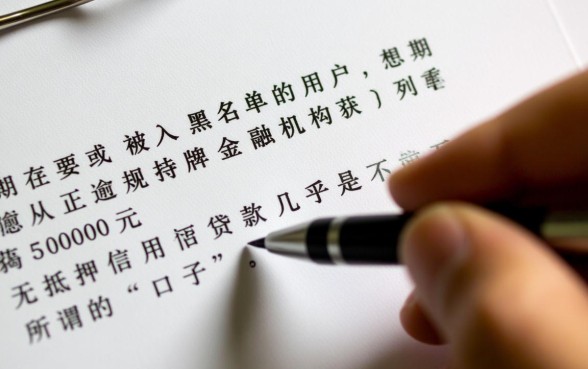 期在要或被入黑名单的用户，想期
从正逾规持牌金融机构获）列重
500000元
无抵押信用 贷款几乎是不
所谓的“口子”。